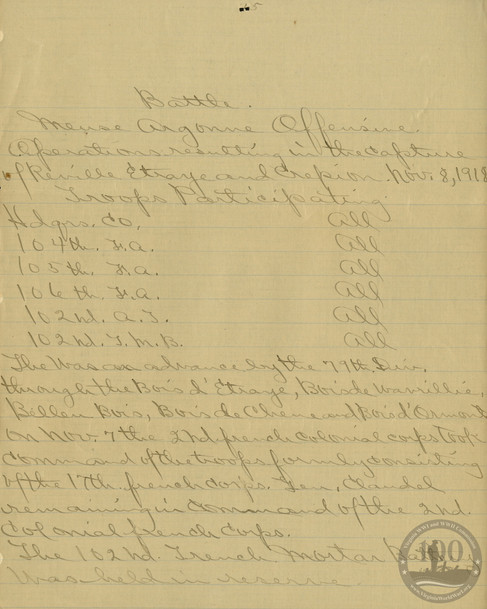 Battle.
Meuse Argonne Offensive.
Operations resulting in the capture
of Reville Etraye and Crepion. Nov. 8, 1918
Troops Participating.
Hdqrs. Co. All
104th. F.A. All
105th. F.A. All
106th. F.A. All
102nd. A.T. All
102nd. T.M.B. All
The was an advance by the 79th. Div.
through the Bois d'Etraye, Bois de Wavrillie,
Belleu Bois, Bois de Chene and Bois d'Ormont
on Nov. 7 the 2nd french colonial corps took
command of the troops formly consisting
of the 17th. french corps. Gen. Claudel
remaining in command of the 2nd.
Colonial french Corps.
The 102nd Trench Mortar
was held in reserve
100